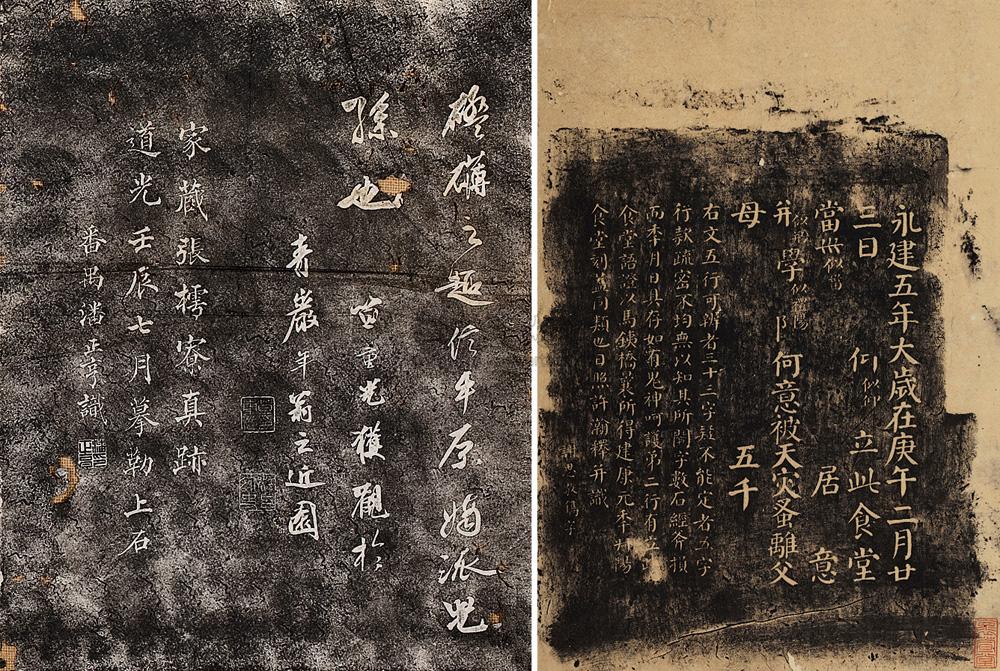 礬礴之趣信平原嫡派兒
孫也 笪重光獲觀於
青巖年翁之近園
家藏張樗寮真跡
道光壬辰七月摹勒上石
番禺潘正亨識
永建五年大歲在庚午二月廿
三日 仰似仰 立此食堂
當無似當 居 意
并似當學似陽阝何意被天災蚤離父
母 五千
右文五行可辨者三十三字疑不能定者五字
行款疏密不均無以知其所闕字數石經斧損
而年月日具存如有鬼神呵護弟二行有立
食堂語證以馬鐵橋襄所得建康元年
食堂刻葢同類也日照許瀚釋并識